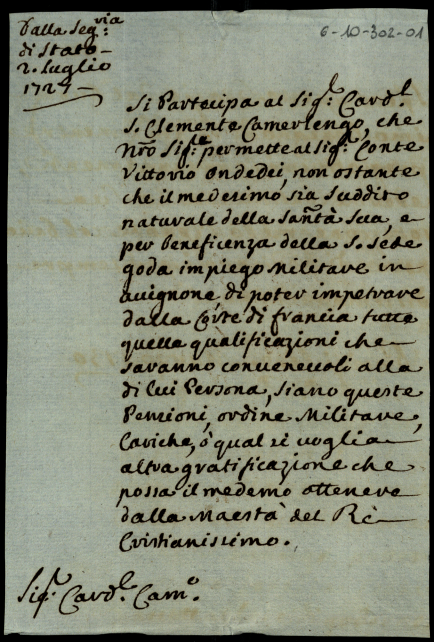 Dalla Seg.via
di Stato
2. luglio
1727
6-10-302-01
Si Partecipa al Sig.r Card.l
S. Clemente Camerlengo, che
Nrõ Sig.re permette al Sig.r Conte
Vittorio Ondedei, non ostante
che il medesimo sia Suddito
naturale della San.tà Sua, e
per beneficenza della S. Sede
goda impiego Militare in
Avignone, di poter impetrare
dalla Corte di francia tutte
quelle qualificazioni che
saranno convenevoli alla
di lui Persona, siano queste
Pensioni, ordine Militare,
Cariche, ò qual si voglia
altra gratificazione che
possa il medemo ottenere
dalla Maestà del Rè
Cristianissimo.
Sig.r Card.l Cam.o